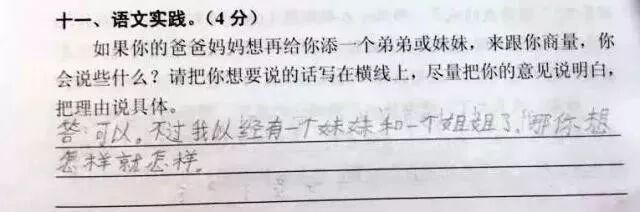 十一、语文实践。（4 分）
如果你的爸爸妈妈想再给你添一个弟弟或妹妹，来跟你商量，你
会说些什么？请把你想要说的话写在横线上，尽量把你的意见说明白，
把理由说具体。
答：可以。不过我以经有一个妹妹和一个姐姐了，哪你想
怎样就怎样。